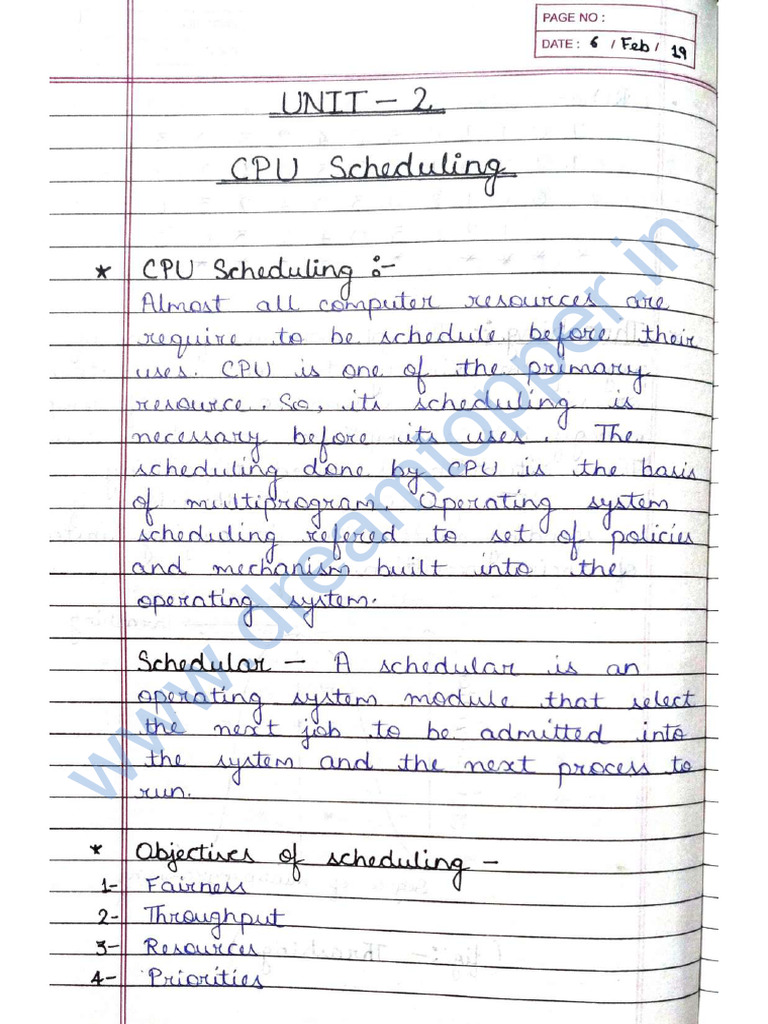 PAGE NO :
DATE : 6 / Feb / 19
UNIT - 2
CPU Scheduling
* CPU Scheduling :-
Almost all computer resources are
require to be schedule before their
uses. CPU is one of the primary
resource. So, its scheduling is
necessary before its uses. The
scheduling done by CPU is the basis
of multiprogram. Operating system
scheduling refered to set of policies
and mechanism built into the
operating system.
Schedular - A schedular is an
operating system module that select
the next job to be admitted into
the system and the next process to
run.
* Objectives of scheduling -
1- Fairness
2- Throughput
3- Resources
4- Priorities
www.dreamtopper.in